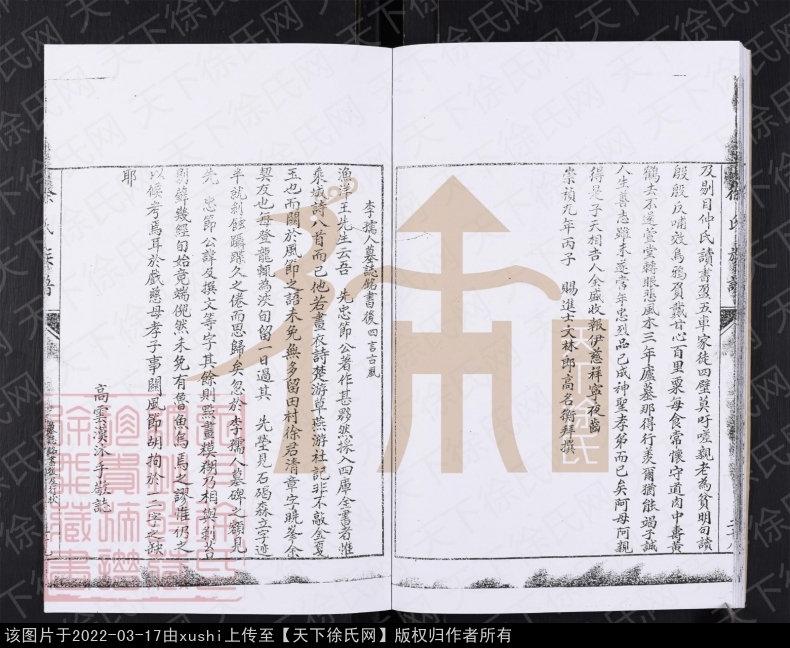 及剔目仲氏讀書盈五車家徒四壁莫吁嗟親老為貧明句讀
殷殷反哺效烏鴉負戴甘心百里粟每食常懷守道肉中壽黃
鶴去不還萱堂轉眼悲風木三年廬墓那得行羨爾猶能竭子誠
人生善志雖未遂當年忠烈品已成神聖孝弟而已矣阿母阿親
得是子天相吉人余盛收報伊慈祥寧夜齒
崇禎九年丙子 賜進士文林郎高名衡拜撰
李孺人墓誌銘書後四言古風
漁洋王先生云吾 先忠節公著作甚夥然採入四庫全書者惟
乘城詩八首而已他若畫衣詩楚游草燕游社記非不敲金戛
玉也而關於風節之語未免無多留田村徐君清章字曉峯余
契友也每登龍頫為浹旬留一日過其 先塋見石碣森立字迹
半就剝蝕躊躇久之倦而思歸矣忽於李孺人墓碑 額見
先 忠節公諱及撰文等字其餘則點畫模糊乃相與剝苔
剔蘚幾經旬始竟端倪然未免有魯魚烏馬之謬惟仍之
以俟考焉耳於戲慈母孝子事關風節胡拘於一二字之缺
耶
高雲漢沐手敬誌
徐氏族譜
天下徐氏
该图片于2022-03-17由xushi上传至【天下徐氏网】版权归作者所有